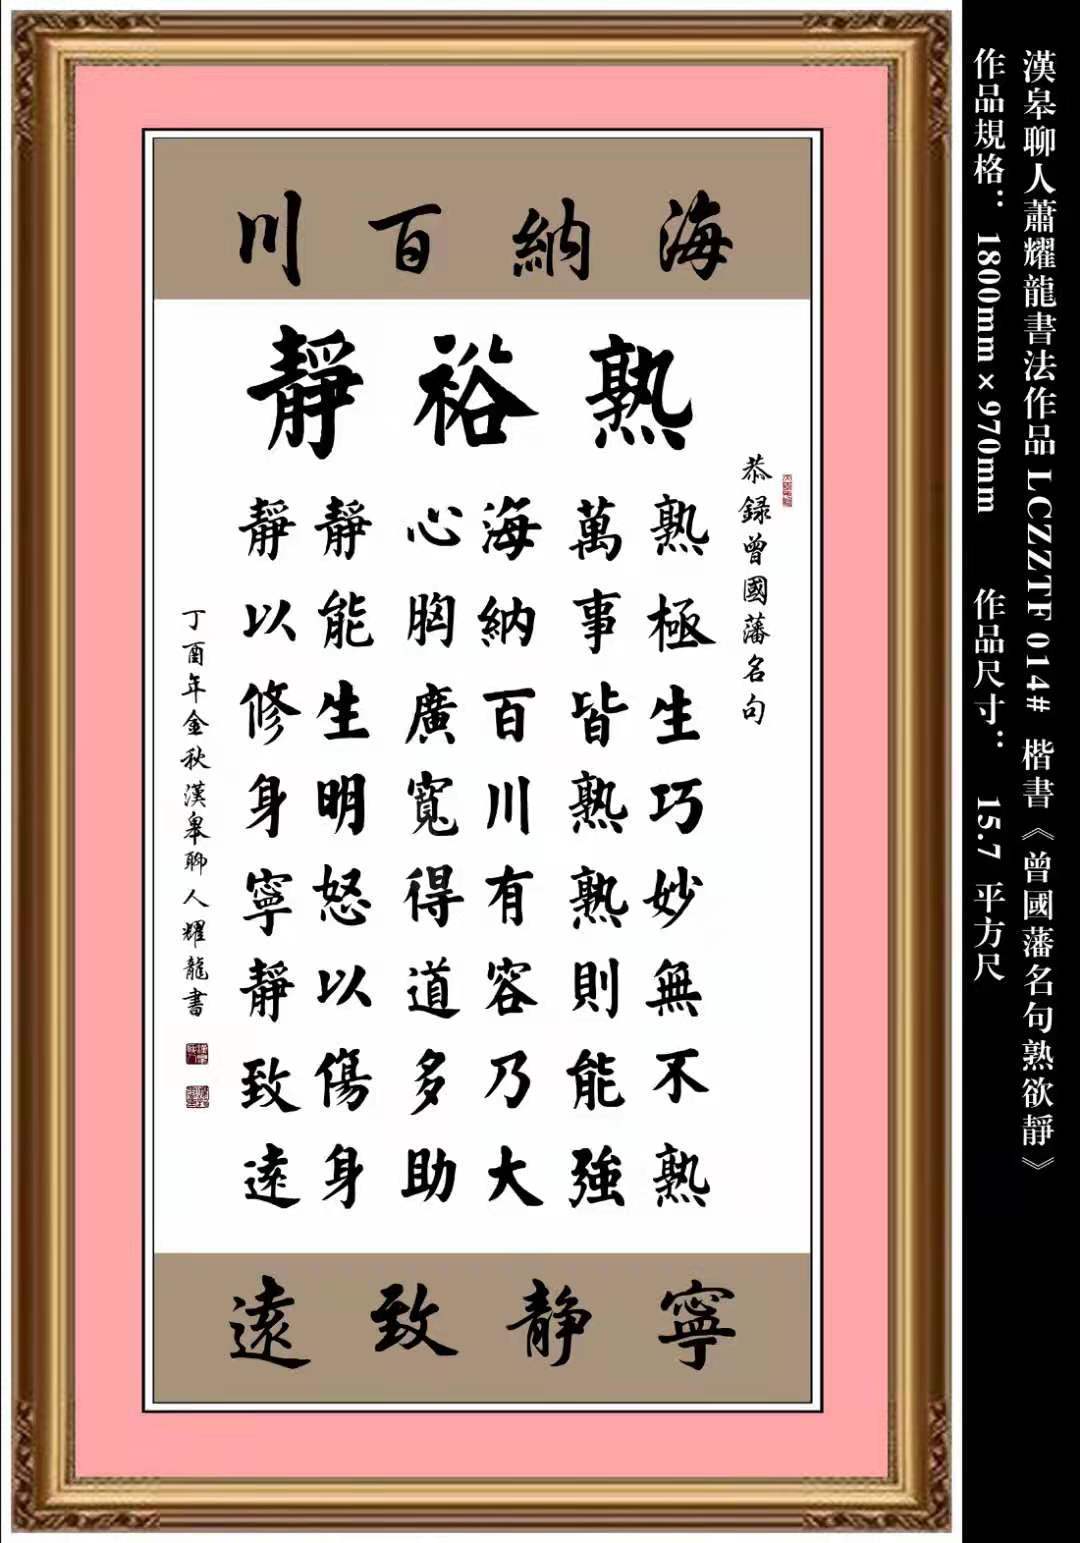 漢皋聊人蕭耀龍書法作品 LCZZTF 014#  楷書《曾國藩名句熟欲靜》
作品規格： 1800mm×970mm  作品尺寸： 15.7 平方尺
海納百川
熟裕靜
恭録曾國藩名句
熟極生巧妙無不熟
萬事皆熟熟則能強
海納百川有容乃大
心胸廣寬得道多助
靜能生明怒以傷身
靜以修身寧靜致遠
丁酉年金秋漢皋聊人耀龍書
寧静致遠